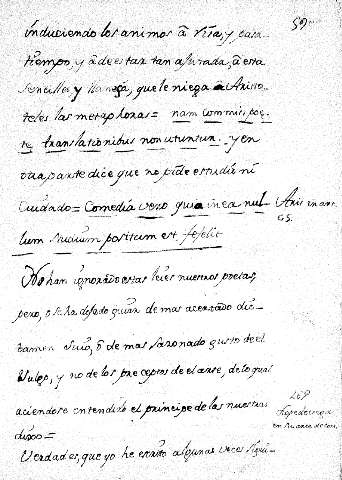 59
induciendo los animos â risa, y pasa-
tiempo, y â de estar tan apurada, â esta
sencilles, y llaneça, que le niega â Aristo-
teles las metaphoras = nam commici poe-
te translationibus non utuntur. y en
otra parte dice que no pide estudio ni
cuidado = Comedia vero quia in ea nul-
lum studium positum est fefelit
Aris in art.
c. 5.
No han ignorado estas leies nuestros poetas,
pero, o se ha dejado guiar de mas acertado dic-
tamen suio, ô de mas saçonado gusto de el
Vulgo, y no de los preceptos de el arte, de lo qual
aciendose entendido el principe de los nuestros
dixo =
Lope de vega
Verdad es, que yo he escrito algunas veces sigui-